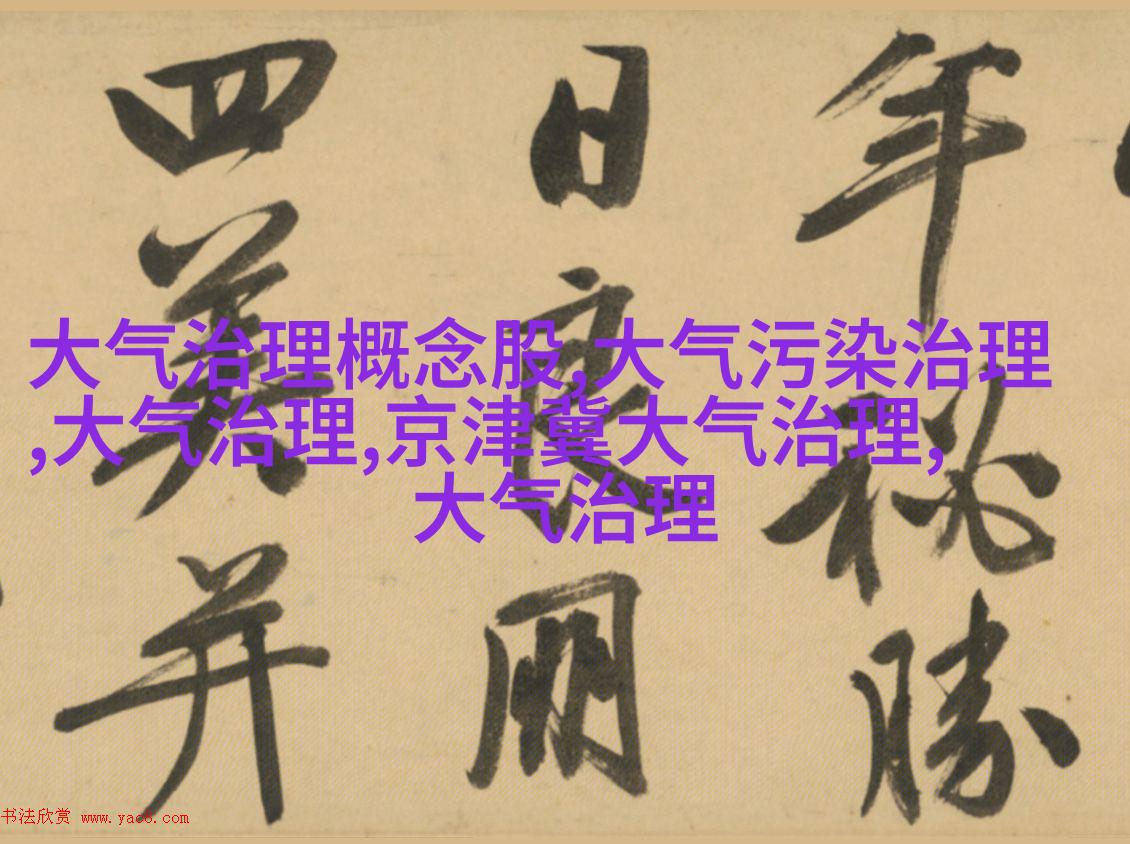 年秘勝
日良朋
四美并
大气治理概念股,大气污染治理
,大气治理,京津冀大气治理,
大气治理
书法欣赏 www.yac8.com